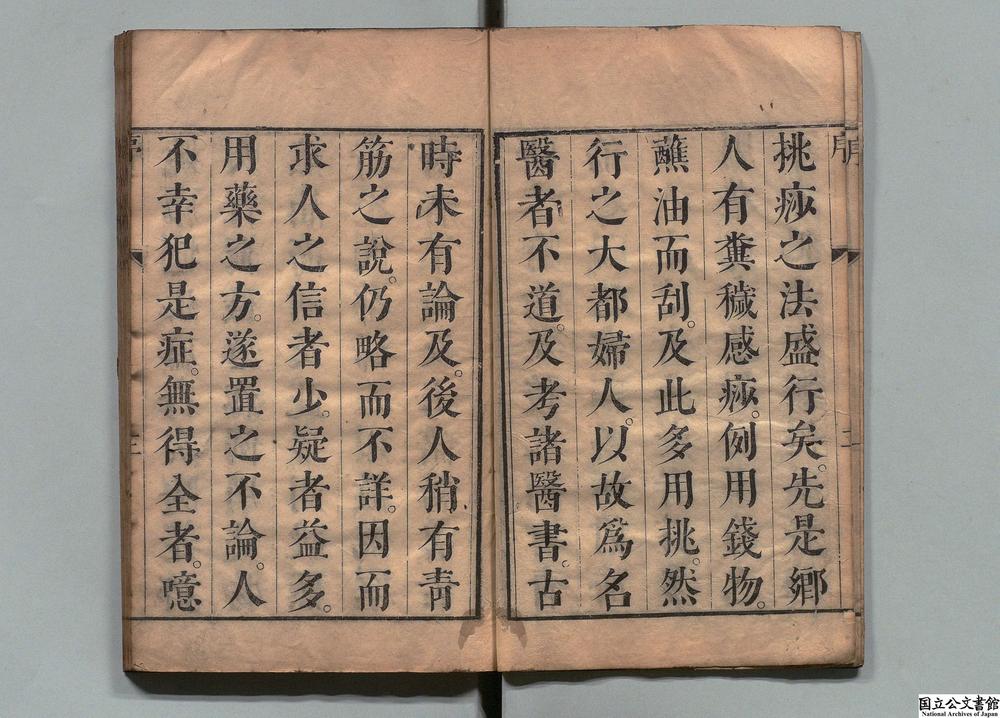 挑痧之法盛行矣。先是鄉
人有糞穢感痧。例用錢物。
蘸油而刮。及此多用挑。然
行之大都婦人。以故爲名
醫者不道。及考諸醫書。古
時未有論及。後人稍有靑
筋之說。仍略而不詳。因而
求人之信者少。疑者益多。
用藥之方。遂置之不論。人
不幸犯是症。無得全者。噫
序
国立公文書館
National Archives of Japan